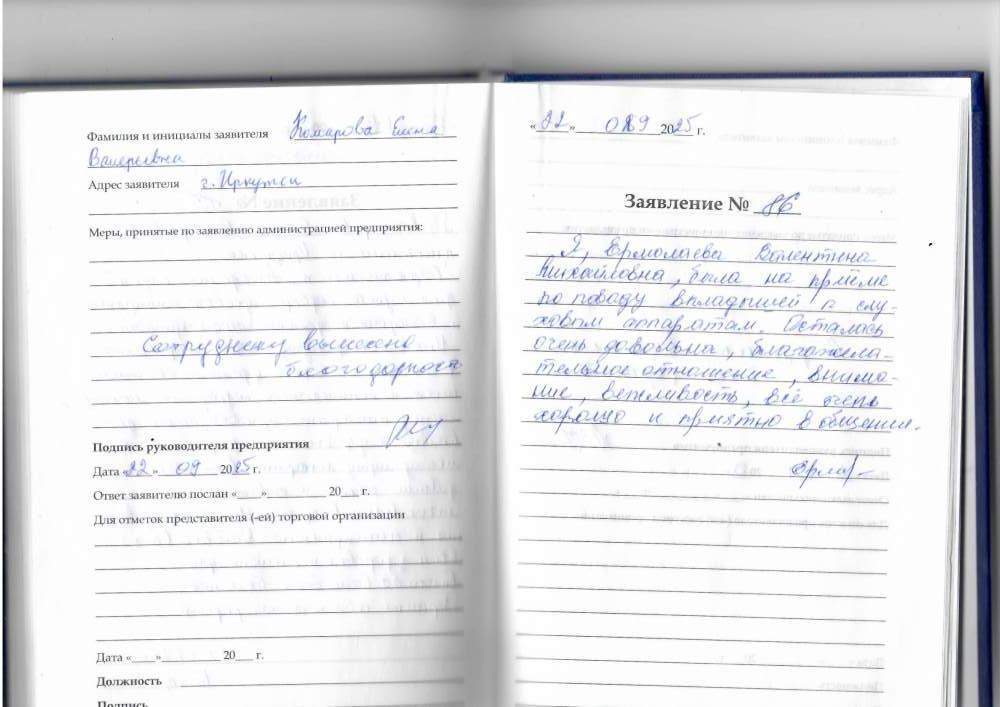 Фамилия и инициалы заявителя Комарова Елена
Валерьевна
Адрес заявителя г. Иркутск
Меры, принятые по заявлению администрацией предприятия:
Сотруднику вынесена
благодарность
Подпись руководителя предприятия
Дата «22» 09 2025 г.
Ответ заявителю послан «___»________ 20___ г.
Для отметок представителя (-ей) торговой организации
Дата «___»________ 20___ г.
Должность
Подпись
«22» 09 2025 г.
Заявление № 86
Я, Ермолаева Валентина
Михайловна, была на приёме
по поводу вкладышей к слу-
ховым аппаратам. Осталась
очень довольна, благожела-
тельное отношение, внима-
ние, вежливость, всё очень
хорошо и приятно в общении.